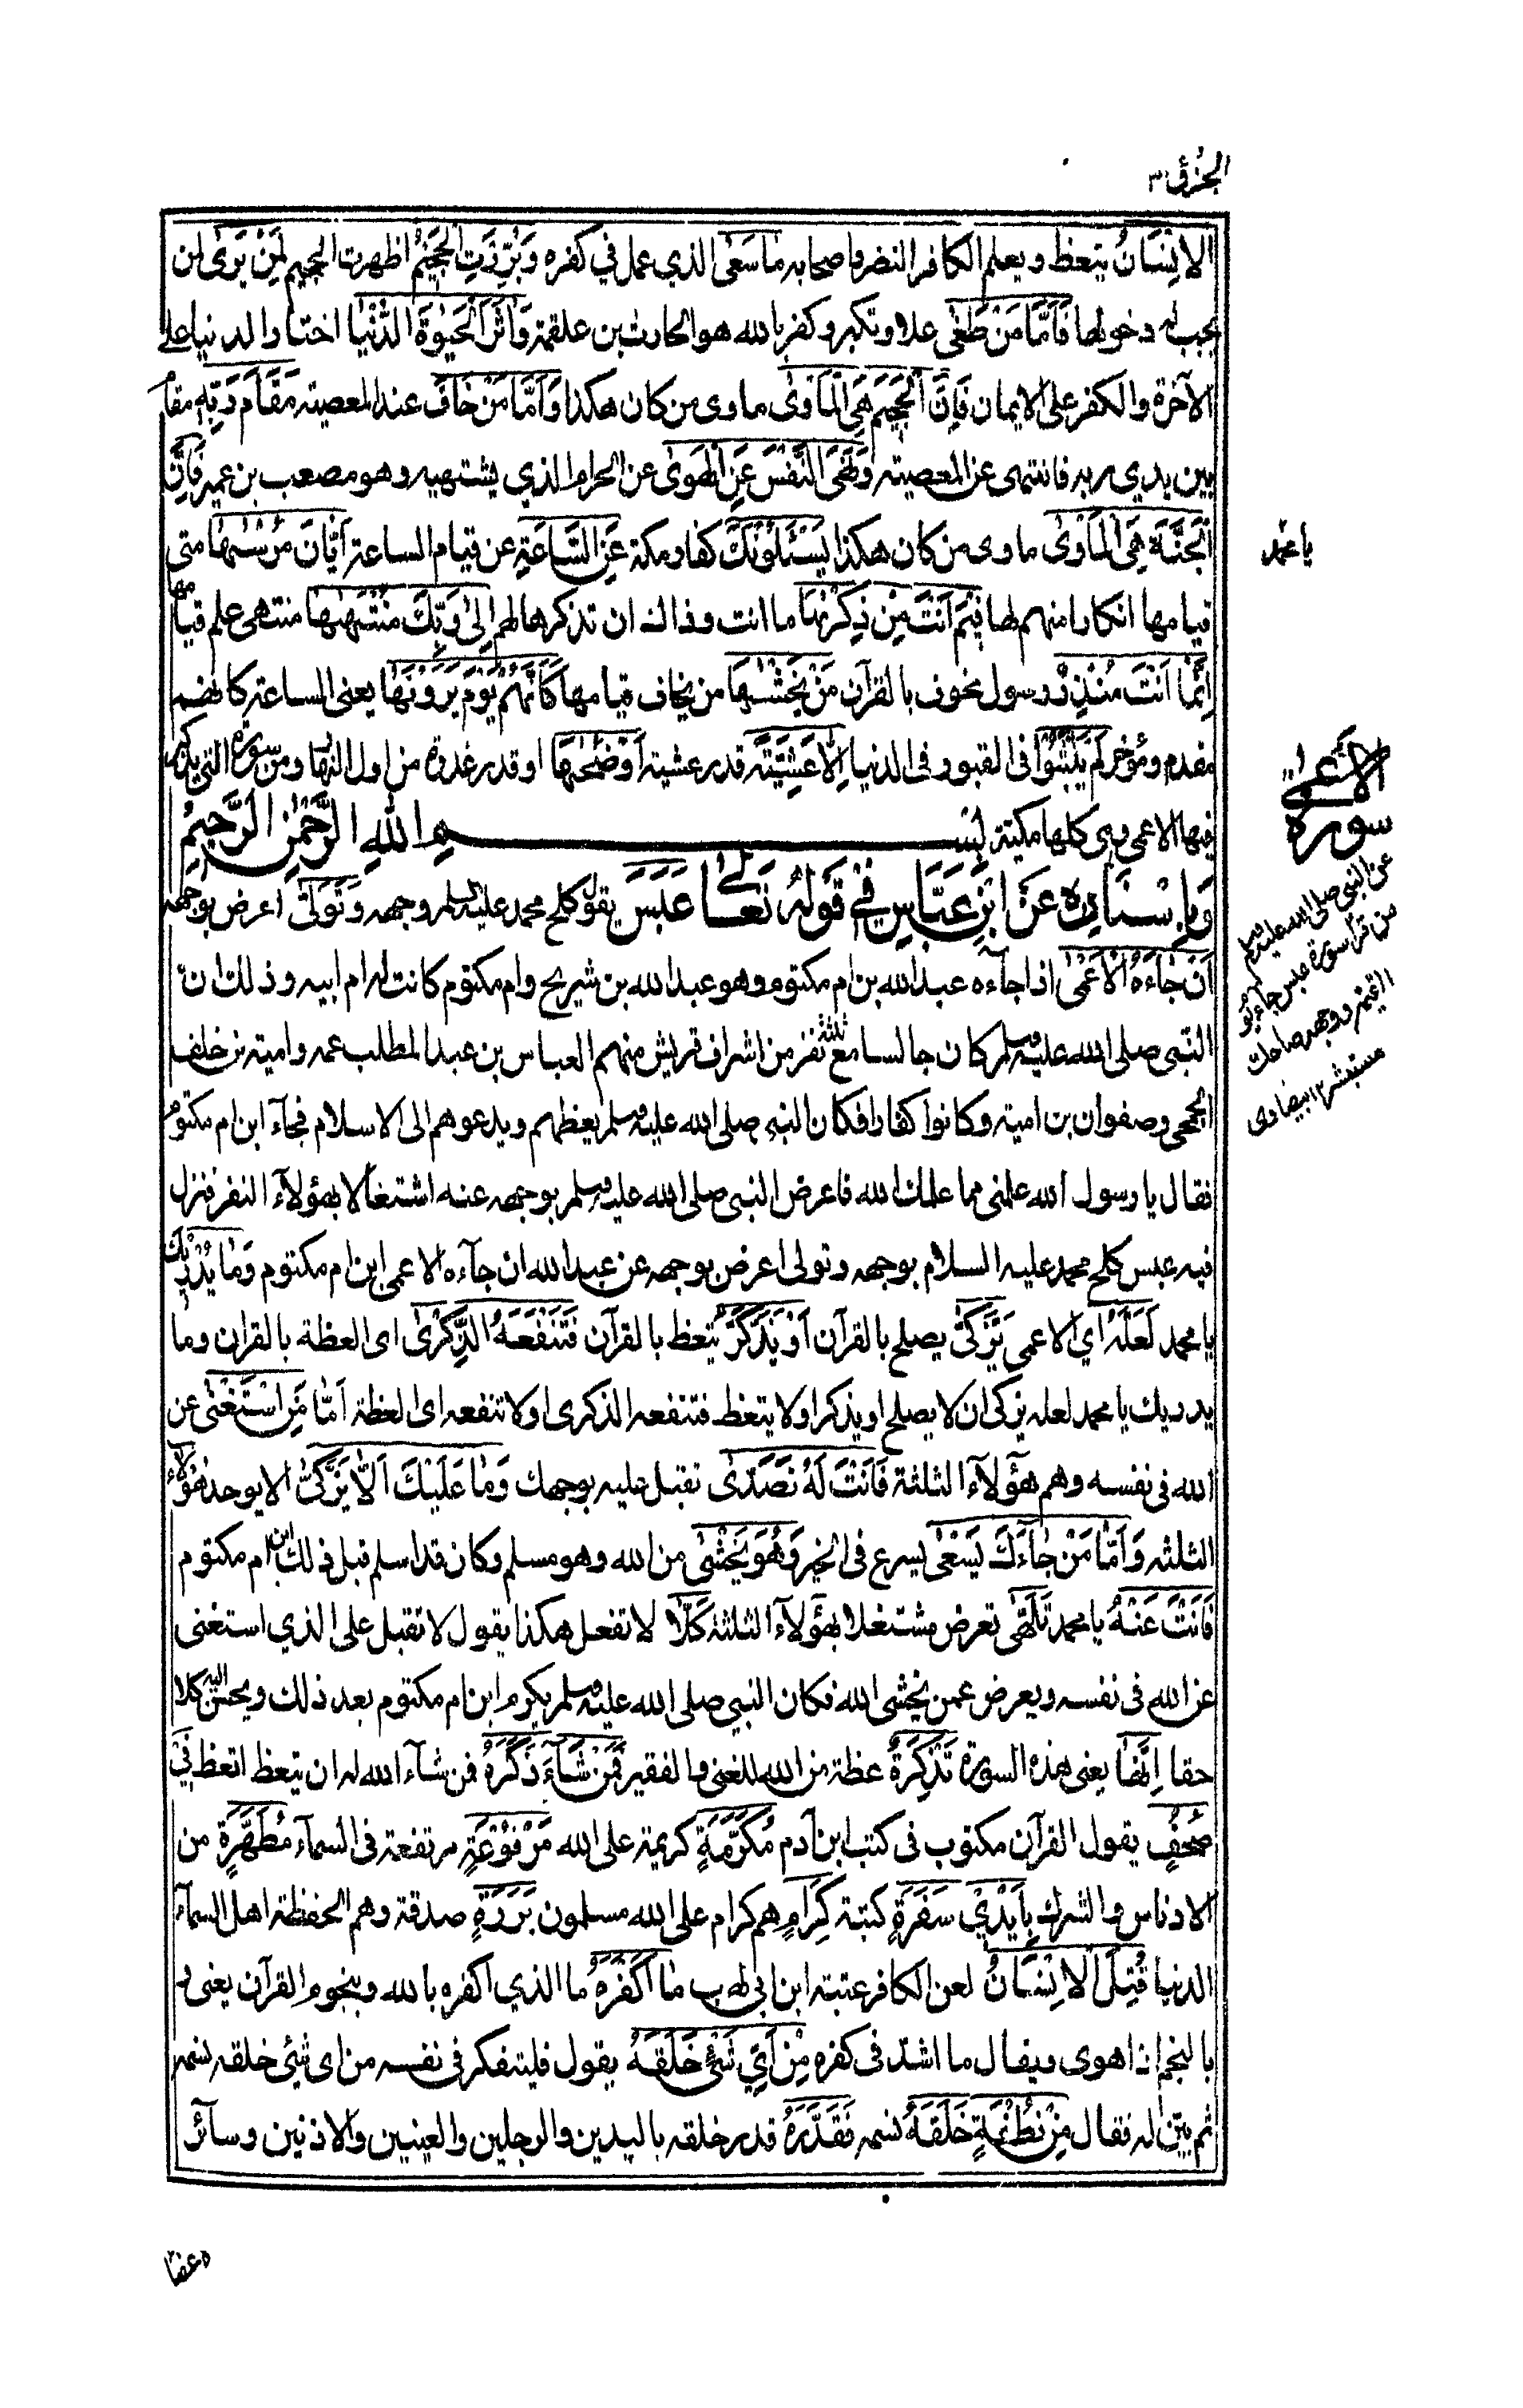 الجزؤ ٣٠
الانِسَانُ يتعظ ويعلم الكافر النضر واصحابه مَا سَعٰى الذي عمل في كفره وَبُرِّزَتِ الْجَحِيْمُ اظهرت الجحيم لِمَنْ يَرٰى لمن
يجب له دخولها فَاَمَّا مَنْ طَغٰى علا وتكبر وكفر بالله هو الحارث بن علقمة وَاٰثَرَ الْحَيٰوةَ الدُّنْيَا اختار الدنيا على
الآخرة والكفر على الايمان فَاِنَّ الْجَحِيْمَ هِيَ الْمَاْوٰى ماوى من كان هكذا وَاَمَّا مَنْ خَافَ عند المعصية مَقَامَ رَبِّهٖ مقامه
بين يدي ربه فانتهى عن المعصية وَنَهَى النَّفْسَ عَنِ الْهَوٰى عن الحرام الذي يشتهيه وهو مصعب بن عمير فَاِنَّ
الْجَنَّةَ هِيَ الْمَاْوٰى ماوى من كان هكذا يَسْئَلُوْنَكَ كفار مكة عَنِ السَّاعَةِ عن قيام الساعة اَيَّانَ مُرْسٰهَا متى
يا محمد
قيامها انكارا منهم لها فِيْمَ اَنْتَ مِنْ ذِكْرٰهَا ما انت وذاك ان تذكرها لهم اِلٰى رَبِّكَ مُنْتَهٰهَا منتهى علم قيامها
اِنَّمَا اَنْتَ مُنْذِرُ رسول مخوف بالقرآن مَنْ يَّخْشٰهَا من يخاف قيامها كَاَنَّهُمْ يَوْمَ يَرَوْنَهَا يعنى الساعة كانهم
مقدم ومؤخر لَمْ يَلْبَثُوْا فى القبور وفى الدنيا اِلَّا عَشِيَّةً قدر عشية اَوْ ضُحٰهَا او قدر غدوة من اول النهار ومن سورة التى يذكر
فيها الاعمى وهى كلها مكية بِسْمِ اللهِ الرَّحْمٰنِ الرَّحِيْمِ
الاعمى
سورة
وَبِاِسْنَادِهٖ عَنِ ابْنِ عَبَّاسٍ فِيْ قَوْلِهٖ تَعَالٰى عَبَسَ يقول كلح محمد عليه وسلم وجهه وَتَوَلّٰى اعرض بوجهه
اَنْ جَآءَهُ الْاَعْمٰى اذا جآءه عبد الله بن ام مكتوم وهو عبد الله بن شريح وام مكتوم كانت ام ابيه وذلك ان
النبى صلى الله عليه وسلم كان جالسا مع ثلثة نفر من اشراف قريش منهم العباس بن عبد المطلب عمه وامية بن خلف
الجمحى وصفوان بن امية وكانوا كفارا فكان النبى صلى الله عليه وسلم يعظهم ويدعوهم الى الاسلام فجآء ابن ام مكتوم
عن النبى صلى الله عليه وسلم
من قرا سورة عبس جاء يوم
القيمة ووجهه ضاحك
مستبشر ١٢ بيضاوى
فقال يا رسول الله علمنى مما علمك الله فاعرض النبى صلى الله عليه وسلم بوجهه عنه اشتغالا بهؤلآء النفر فنزل
فيه عبس كلح محمد عليه السلام بوجهه وتولى اعرض بوجهه عن عبد الله ان جآءه الاعمى ابن ام مكتوم وَمَا يُدْرِيْكَ
يا محمد لَعَلَّهٗ اي الاعمى يَزَّكّٰى يصلح بالقرآن اَوْ يَذَّكَّرُ يتعظ بالقرآن فَتَنْفَعَهُ الذِّكْرٰى اى العظة بالقران وما
يدريك يا محمد لعله يزكى ان لا يصلح او يذكر او لا يتعظ فتنفعه الذكرى او لا تنفعه اى العظة اَمَّا مَنِ اسْتَغْنٰى عن
الله فى نفسه وهم هؤلآء الثلثة فَاَنْتَ لَهٗ تَصَدّٰى تقبل عليه بوجهك وَمَا عَلَيْكَ اَلَّا يَزَّكّٰى الا يوحد هؤلآء
الثلثه وَاَمَّا مَنْ جَآءَكَ يَسْعٰى يسرع فى الخير وَهُوَ يَخْشٰى من الله وهو مسلم وكان قد اسلم قبل ذلك ابن ام مكتوم
فَاَنْتَ عَنْهُ يا محمد تَلَهّٰى تعرض مشتغلا بهؤلآء الثلثة كَلَّا لا تفعل هكذا يقول لا تقبل على الذي استغنى
عن الله فى نفسه ويعرض عمن يخشى الله فكان النبى صلى الله عليه وسلم يكرم ابن ام مكتوم بعد ذلك ويحسن اليه كلا
حقا اِنَّهَا يعنى هذه السورة تَذْكِرَةٌ عظة من الله للغنى والفقير فَمَنْ شَآءَ ذَكَرَهٗ فمن شآء الله له ان يتعظ اتعظ فِيْ
صُحُفٍ يقول القرآن مكتوب فى كتب ابن آدم مُكَرَّمَةٍ كريمة على الله مَرْفُوْعَةٍ مرتفعة فى السمآء مُطَهَّرَةٍ من
الادناس والشرك بِاَيْدِيْ سَفَرَةٍ كتبة كِرَامٍ هم كرام على الله مسلمون بَرَرَةٍ صدقة وهم الحفظة اهل السمآء
الدنيا قُتِلَ الْاِنْسَانُ لعن الكافر عتبة ابن ابى لهب مَا اَكْفَرَهٗ ما الذي اكفره بالله وبنجوم القرآن يعنى و
بالنجم اذا هوى ويقال ما اشد فى كفره مِنْ اَيِّ شَيْءٍ خَلَقَهٗ يقول فليتفكر فى نفسه من اى شئ خلقه نسمه
ثم بين له فقال مِنْ نُطْفَةٍ خَلَقَهٗ نسمه فَقَدَّرَهٗ قدر خلقه باليدين والرجلين والعينين والاذنين وسآئر